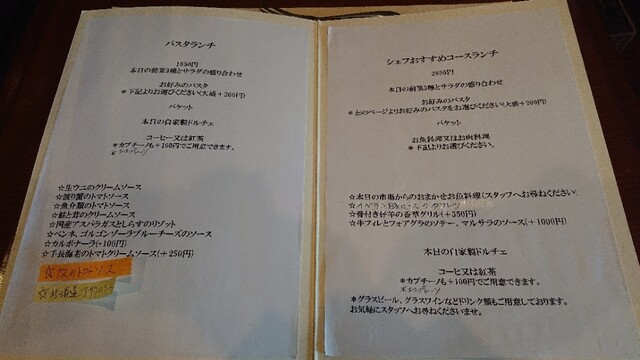 パスタランチ
1850円
本日の前菜3種とサラダの盛り合わせ
お好みのパスタ
＊下記よりお選びください(大盛+200円)
バケット
本日の自家製ドルチェ
コーヒー又は紅茶
＊カプチーノも+100円でご用意できます。
☆生ウニのクリームソース
☆渡り蟹のトマトソース
☆魚介類のトマトソース
☆鮭と茸のクリームソース
☆国産アスパラガスとしらすのリゾット
☆ペンネ、ゴルゴンゾーラブルーチーズのソース
☆カルボナーラ(+100円)
☆手長海老のトマトクリームソース(+250円)
トマトソース
☆北海道
シェフおすすめコースランチ
2850円
本日の前菜3種とサラダの盛り合わせ
お好みのパスタ
＊左のページよりお好みのパスタをお選びください(大盛+200円)
バケット
お魚料理又はお肉料理
＊下記よりお選びください。
☆本日の市場からのおまかせお魚料理(スタッフへお尋ねください)
☆イベリコ
☆骨付き仔羊の香草グリル(+350円)
☆牛フィレとフォアグラのソテー、マルサラのソース(+1000円)
本日の自家製ドルチェ
コーヒー又は紅茶
＊カプチーノも+100円でご用意できます。
＊グラスビール、グラスワインなどドリンク類もご用意しております。
お気軽にスタッフへお尋ねくださいませ。